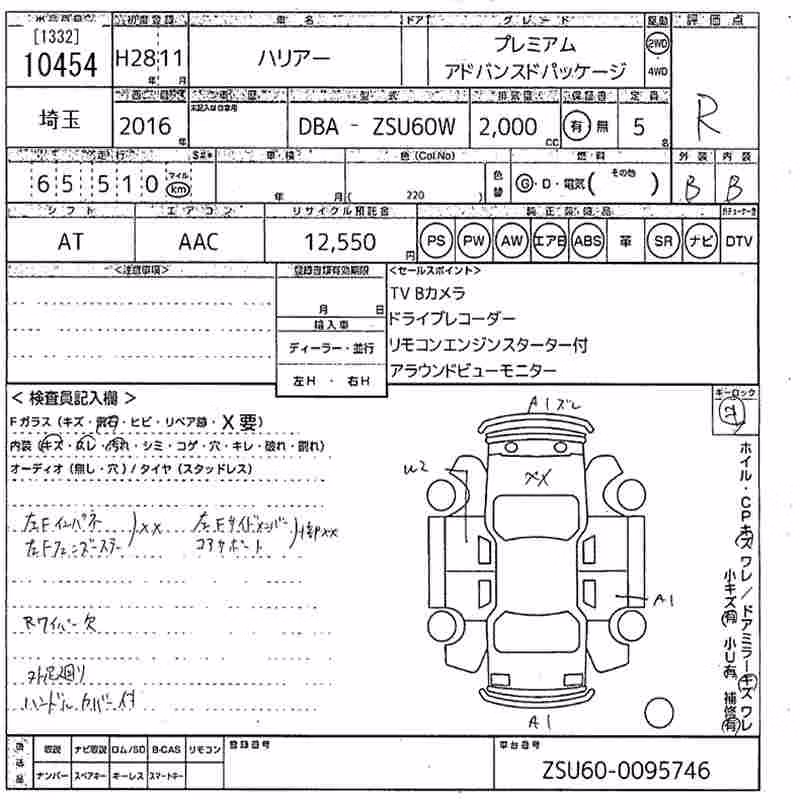 初度登録 車名 ドア グレード 駆動 評価点
[1332]
10454 H28 11 ハリアー プレミアム アドバンスドパッケージ 2WD 4WD
年 月
R
型式 排気量 保証書 定員
埼玉 2016年 DBA - ZSU60W 2,000cc 有 無 5名
走行 車検 色(Col.No) 燃料 外装 内装
65510 マイル km 年 月( 220 ) 色替 G・D・電気( その他 ) B B
シフト エアコン リサイクル預託金 純正装備品
AT AAC 12,550円 PS PW AW エアB ABS 革 SR ナビ DTV
<注意事項> 登録書類有効期限 <セールスポイント>
月 日
TV Bカメラ
輸入車
ドライブレコーダー
ディーラー・並行
リモコンエンジンスターター付
左H ・ 右H
アラウンドビューモニター
<検査員記入欄>
キーロック
Fガラス(キズ・飛石・ヒビ・リペア跡・X要)
内装(キズ・スレ・汚れ・シミ・コゲ・穴・キレ・破れ・割れ)
オーディオ(無し・穴)/タイヤ(スタッドレス)
A1ズレ
XX
W2
左Fインパネ
XX
左Fサイドメンバー
コアサポート
XX
A1
Rワイパー欠
外足廻り
ハンドルカバー付
A1
ホイル・CPキズ ワレ/ドアミラーキズ ワレ
小キズ有 小U有 補修有
取説 ナビ取説 ロム/SD B-CAS リモコン 登録番号 車台番号
ナンバー スペアキー キーレス スマートキー
ZSU60-0095746